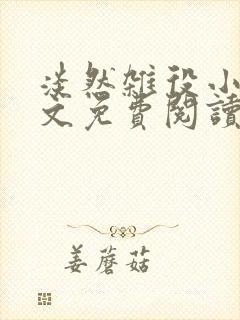 淡然雜役小
文免費閱讀
姜蘑菇